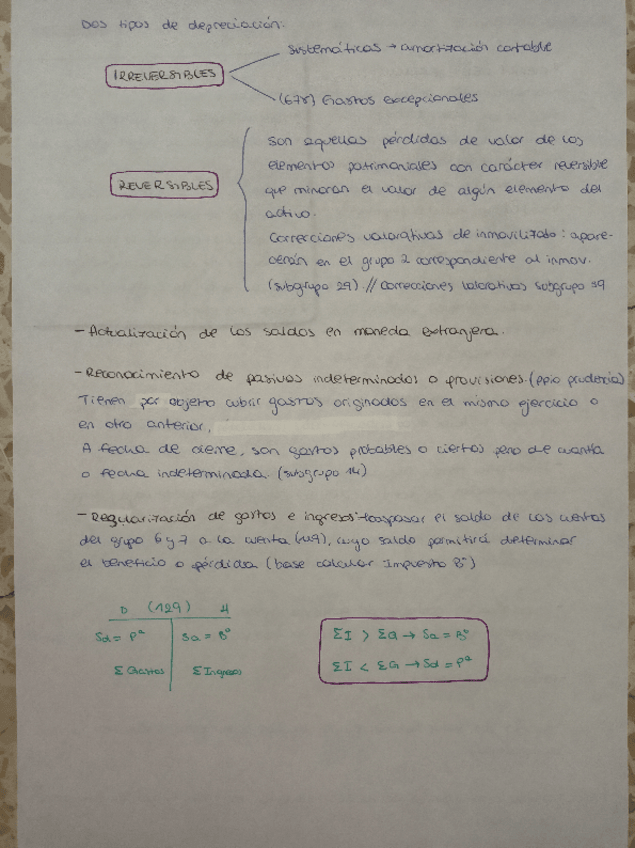 Dos tipos de depreciación:
Sistemáticas → amortización contable
IRREVERSIBLES
(678) Gastos excepcionales
Son aquellas pérdidas de valor de los
elementos patrimoniales con carácter reversible
REVERSIBLES
que minoran el valor de algún elemento del
activo.
Correcciones valorativas de inmovilizado: apare-
cerán en el grupo 2 correspondiente al inmov.
(subgrupo 29). // correcciones valorativas subgrupo 39
- Actualización de los saldos en moneda extranjera.
- Reconocimiento de pasivos indeterminados o provisiones. (ppio prudencia)
Tienen por objeto cubrir gastos originados en el mismo ejercicio o
en otro anterior.
A fecha de cierre, son gastos probables o ciertos pero de cuantía
o fecha indeterminada. (subgrupo 14)
- Regularización de gastos e ingresos: traspasar el saldo de las cuentas
del grupo 6 y 7 a la cuenta (129), cuyo saldo permitirá determinar
el beneficio o pérdida (base calcular Impuesto Bº)
D (129) H
Sd = Pª Sa = Bº
Σ Gastos Σ Ingresos
ΣI > ΣG → Sa = Bº
ΣI < ΣG → Sd = Pª